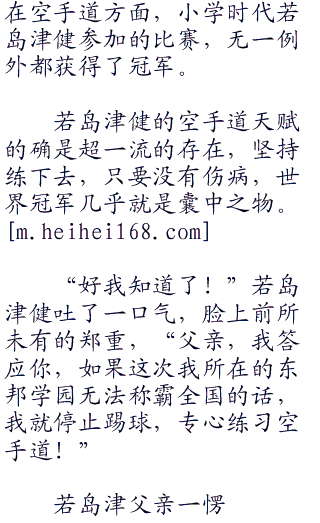 在空手道方面，小学时代若
岛津健参加的比赛，无一例
外都获得了冠军。
若岛津健的空手道天赋
的确是超一流的存在，坚持
练下去，只要没有伤病，世
界冠军几乎就是囊中之物。
[m.heihei168.com]
“好我知道了！”若岛
津健吐了一口气，脸上前所
未有的郑重，“父亲，我答
应你，如果这次我所在的东
邦学园无法称霸全国的话，
我就停止踢球，专心练习空
手道！”
若岛津父亲一愣